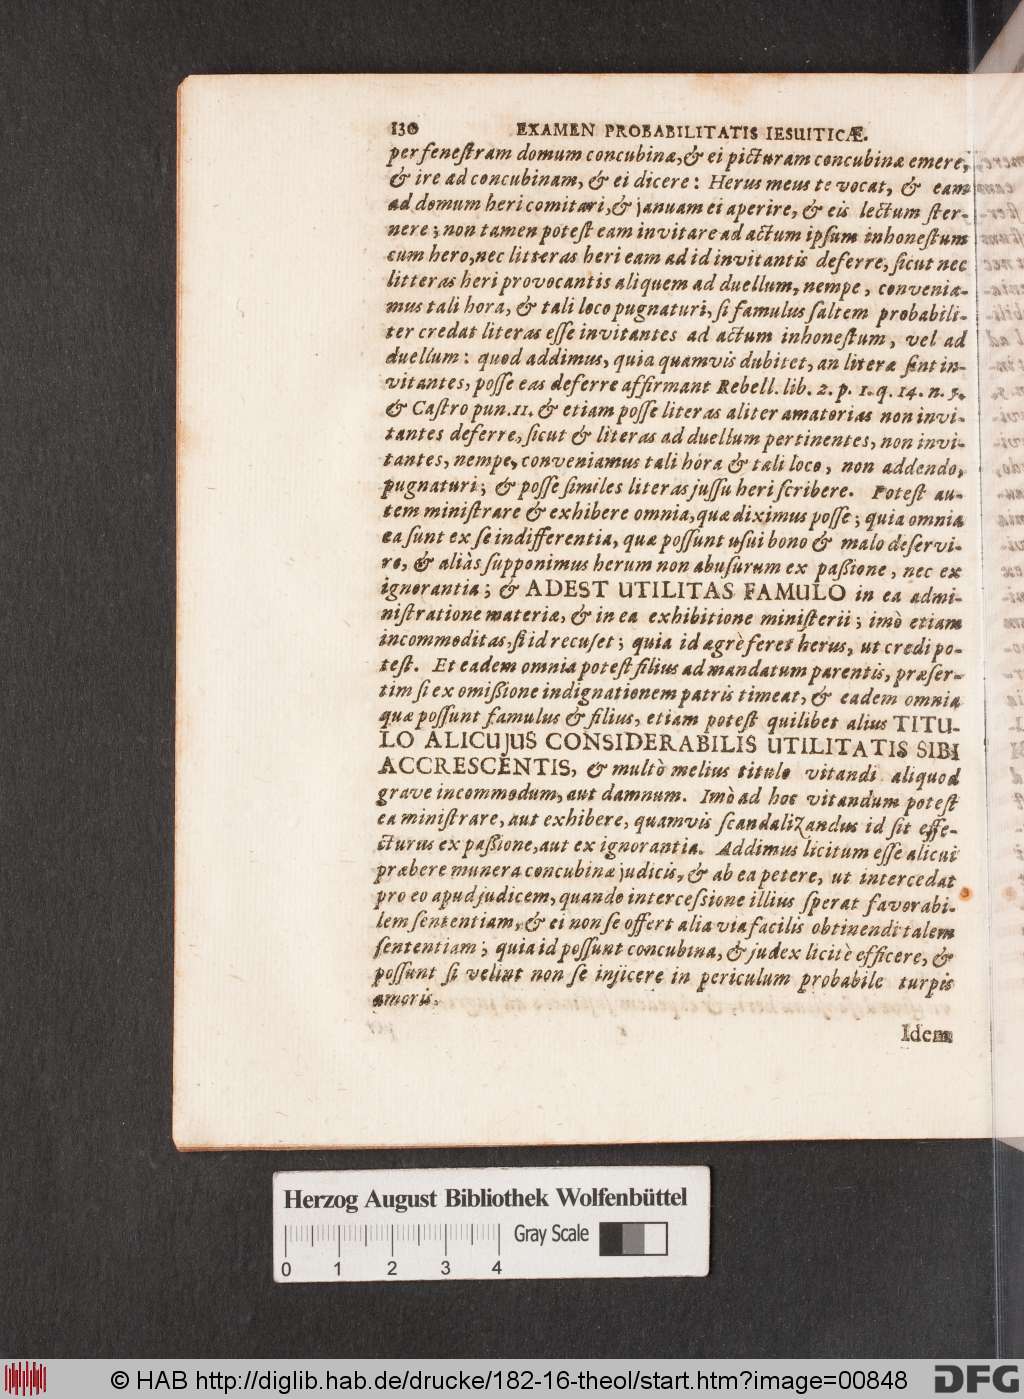 130 EXAMEN PROBABILITATIS IESUITICÆ.
per feneſtram domum concubinæ, & ei picturam concubinæ emere,
& ire ad concubinam, & ei dicere: Herus meus te vocat, & eam
ad domum heri comitari, & januam ei aperire, & eis lectum ſter-
nere; non tamen poteſt eam invitare ad actum ipſum inhoneſtum
cum hero, nec litteras heri eam ad id invitantis deferre, ſicut nec
litteras heri provocantis aliquem ad duellum, nempe, convenia-
mus tali hora, & tali loco pugnaturi, ſi famulus ſaltem probabili-
ter credat literas eſſe invitantes ad actum inhoneſtum, vel ad
duellum: quod addimus, quia quamvis dubitet, an literæ ſint in-
vitantes, poſſe eas deferre affirmant Rebell. lib. 2. p. 1. q. 14. n. 5.
& Caſtro pun. 11. & etiam poſſe literas aliter amatorias non invi-
tantes deferre, ſicut & literas ad duellum pertinentes, non invi-
tantes, nempe, conveniamus tali hóra & tali loco, non addendo,
pugnaturi; & poſſe ſimiles literas juſſu heri ſcribere. Poteſt au-
tem miniſtrare & exhibere omnia, quæ diximus poſſe; quia omnia
ea ſunt ex ſe indifferentia, quæ poſſunt uſui bono & malo deſervi-
re, & aliàs ſupponimus herum non abuſurum ex paßione, nec ex
ignorantia; & ADEST UTILITAS FAMULO in ea admi-
niſtratione materia, & in ea exhibitione miniſterii; imò etiam
incommoditas, ſi id recuſet; quia id agrè feret herus, ut credi po-
teſt. Et eadem omnia poteſt filius ad mandatum parentis, præſer-
tim ſi ex omißione indignationem patris timeat, & eadem omnia
quæ poſſunt famulus & filius, etiam poteſt quilibet alius TITU-
LO ALICUJUS CONSIDERABILIS UTILITATIS SIBI
ACCRESCENTIS, & multò melius titulo vitandi aliquod
grave incommodum, aut damnum. Imò ad hoc vitandum poteſt
ea miniſtrare, aut exhibere, quamvis ſcandalizandus id ſit effe-
cturus ex paßione, aut ex ignorantia. Addimus licitum eſſe alicui
præbere munera concubinæ judicis, & ab ea petere, ut intercedat
pro eo apud judicem, quando interceſsione illius ſperat favorabi-
lem ſententiam, & ei non ſe offert alia via facilis obtinendi talem
ſententiam; quia id poſſunt concubina, & judex licitè efficere, &
poſſunt ſi velint non ſe injicere in periculum probabile turpis
amoris.
Idem
Herzog August Bibliothek Wolfenbüttel
Gray Scale
0 1 2 3 4
© HAB http://diglib.hab.de/drucke/182-16-theol/start.htm?image=00848
DFG